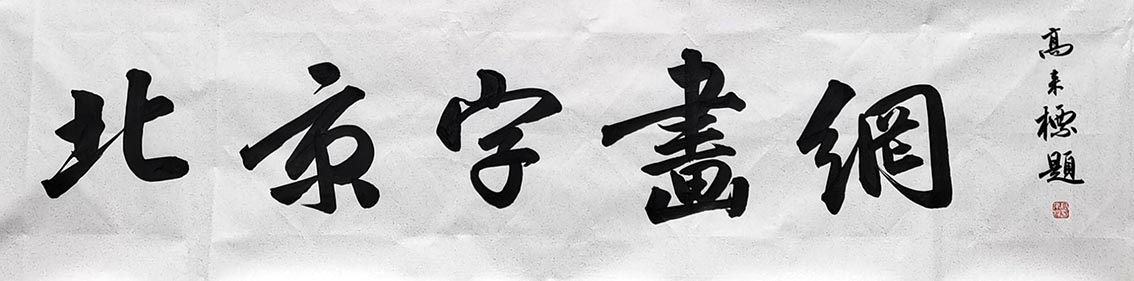 北京字畫網
高来標題